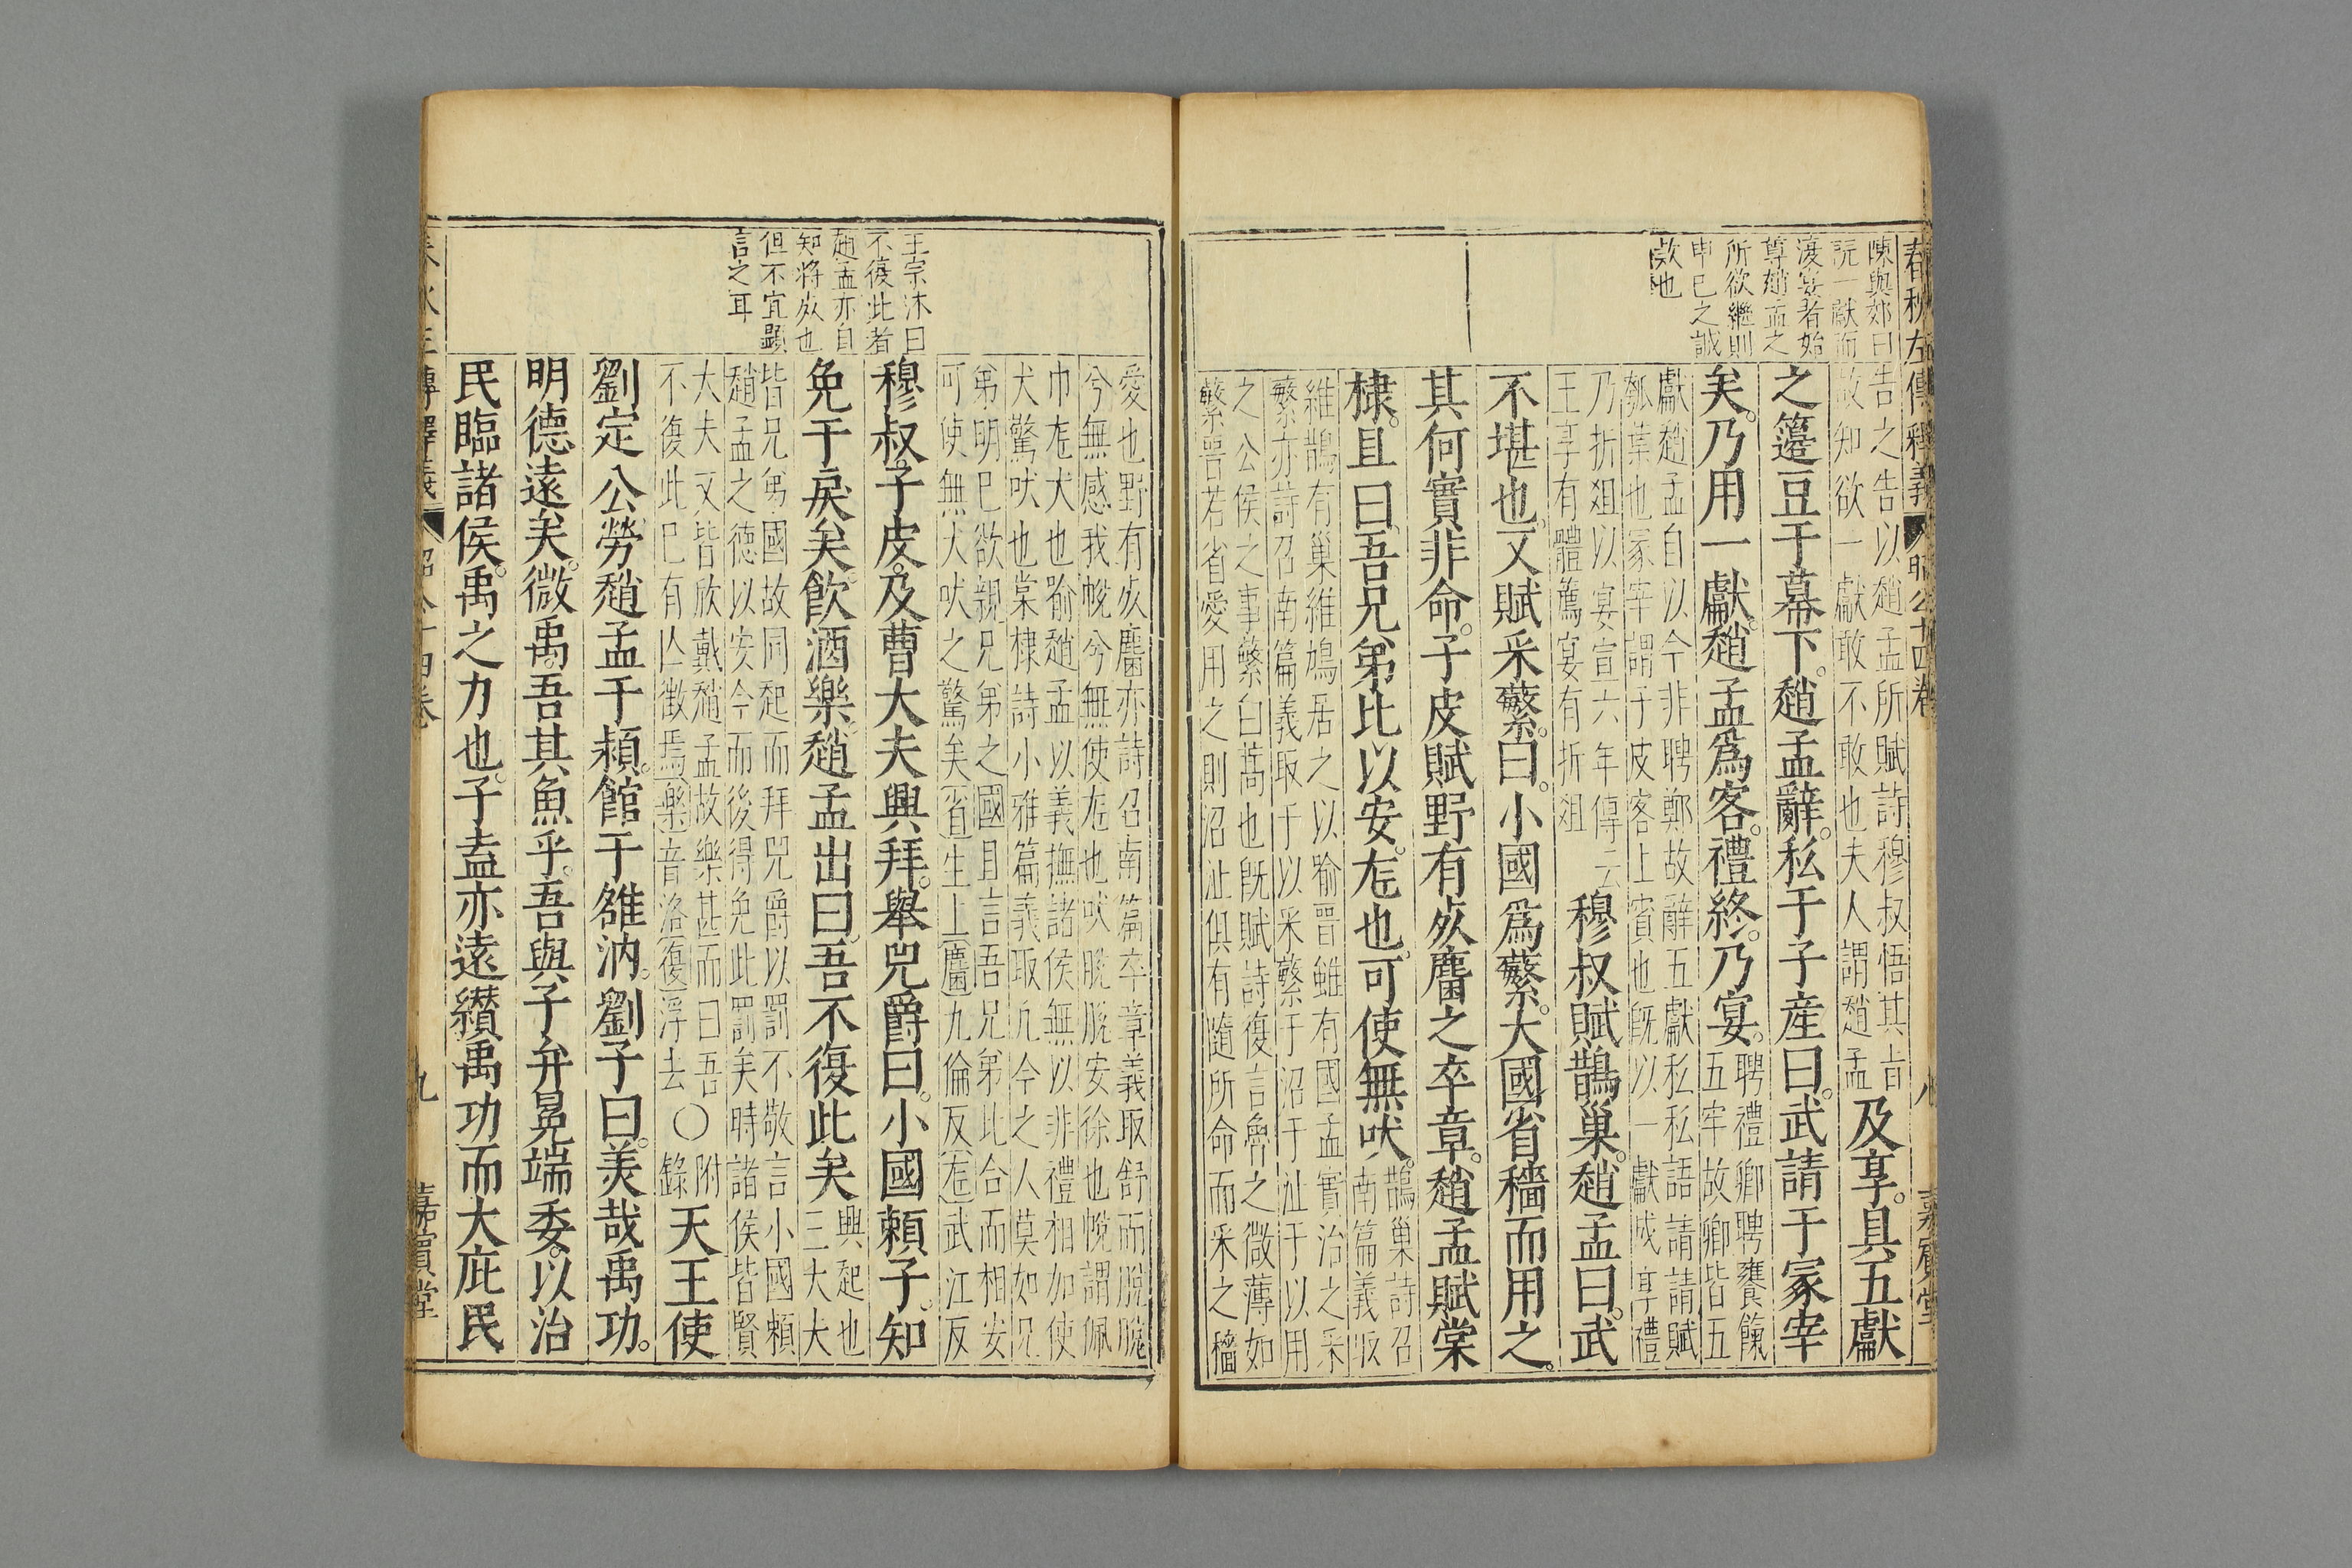 春秋左傳釋義 昭公十四卷 八 嘉賓堂
陳與郊曰
旣一獻而
後宴者始
尊趙孟之
所欲繼則
申已之誠
欵也
告之告以趙孟所賦詩穆叔悟其旨
故知欲一獻敢不敢也夫人謂趙孟
及享。具五獻
之籩豆于幕下。趙孟辭。私于子産曰。武請于冢宰
矣。乃用一獻。趙孟爲客。禮終。乃宴。
聘禮卿聘饔餼
五牢故卿皆五
獻趙孟自以今非聘鄭故辭五獻私私語請請賦
瓠葉也冢宰謂子皮客上賓也旣以一獻成享禮
乃折俎以宴宣六年傳云
王享有體薦宴有折俎
穆叔賦鵲巢。趙孟曰。武
不堪也。又賦采蘩。曰。小國爲蘩。大國省穡而用之。
其何實非命。子皮賦野有死麕之卒章。趙孟賦棠
棣。且曰。吾兄弟比以安。尨也。可使無吠。
鵲巢詩召
南篇義取
維鵲有巢維鳩居之以喻晋雖有國孟實治之采
蘩亦詩召南篇義取于以采蘩于沼于沚于以用
之公侯之事蘩白蒿也旣賦詩復言魯之微薄如
蘩晋若省愛用之則沼沚俱有隨所命而采之穡
愛也野有死麕亦詩召南篇卒章義取舒而脫脫
兮無感我帨兮無使尨也吠脫脫安徐也帨謂佩
巾尨犬也喻趙孟以義撫諸侯無以非禮相加使
犬驚吠也棠棣詩小雅篇義取凢今之人莫如兄
弟明已欲親兄弟之國且言吾兄弟比合而相安
可使無犬吠之驚矣省生上麕九倫反尨武江反
王宗沐曰
不復此者
趙孟亦自
知將死也
但不宜顯
言之耳
穆叔。子皮。及曹大夫興拜。舉兕爵曰。小國賴子。知
免于戾矣。飲酒樂。趙孟出曰。吾不復此矣
興起也
三大夫
皆兄弟國故同起而拜兕爵以罰不敬言小國賴
趙孟之德以安今而後得免此罰矣時諸侯皆賢
大夫又皆欣戴趙孟故樂甚而曰吾
不復此已有亾徵焉樂音洛復浮去
○附
錄
天王使
劉定公勞趙孟于潁。館于雒汭。劉子曰。美哉禹功。
明德遠矣。微禹。吾其魚乎。吾與子弁冕端委。以治
民臨諸侯。禹之力也。子盍亦遠纘禹功而大庇民
春秋左傳釋義 昭公十四卷 九 嘉賓堂